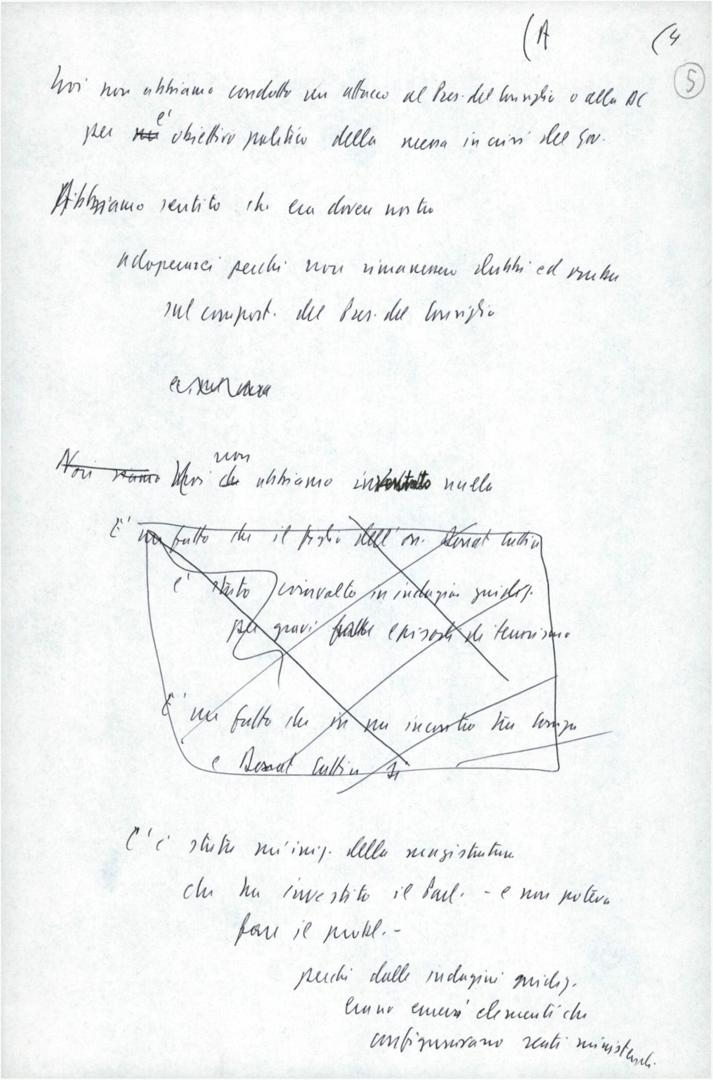 (A (4
5
Noi non abbiamo condotto un attacco al Pres. del Consiglio o alla DC
per l' obiettivo politico della messa in crisi del Gov.
Abbiamo sentito che era dovere nostro
adoperarci perché non rimanessero dubbi ed ombre
sul comport. del Pres. del Consiglio
Noi siamo Noi non abbiamo inventato nulla
E' un fatto che il figlio dell'on. Donat Cattin
è stato coinvolto in indagini giudiz.
per gravi fatti episodi di terrorismo
E' un fatto che in un incontro tra Cossiga
e Donat Cattin si
C'è stata un'iniz. della magistratura
che ha investito il Parl. - e non poteva
fare il probl. -
perché dalle indagini giudiz.
erano emersi elementi che
configuravano reati ministeriali.